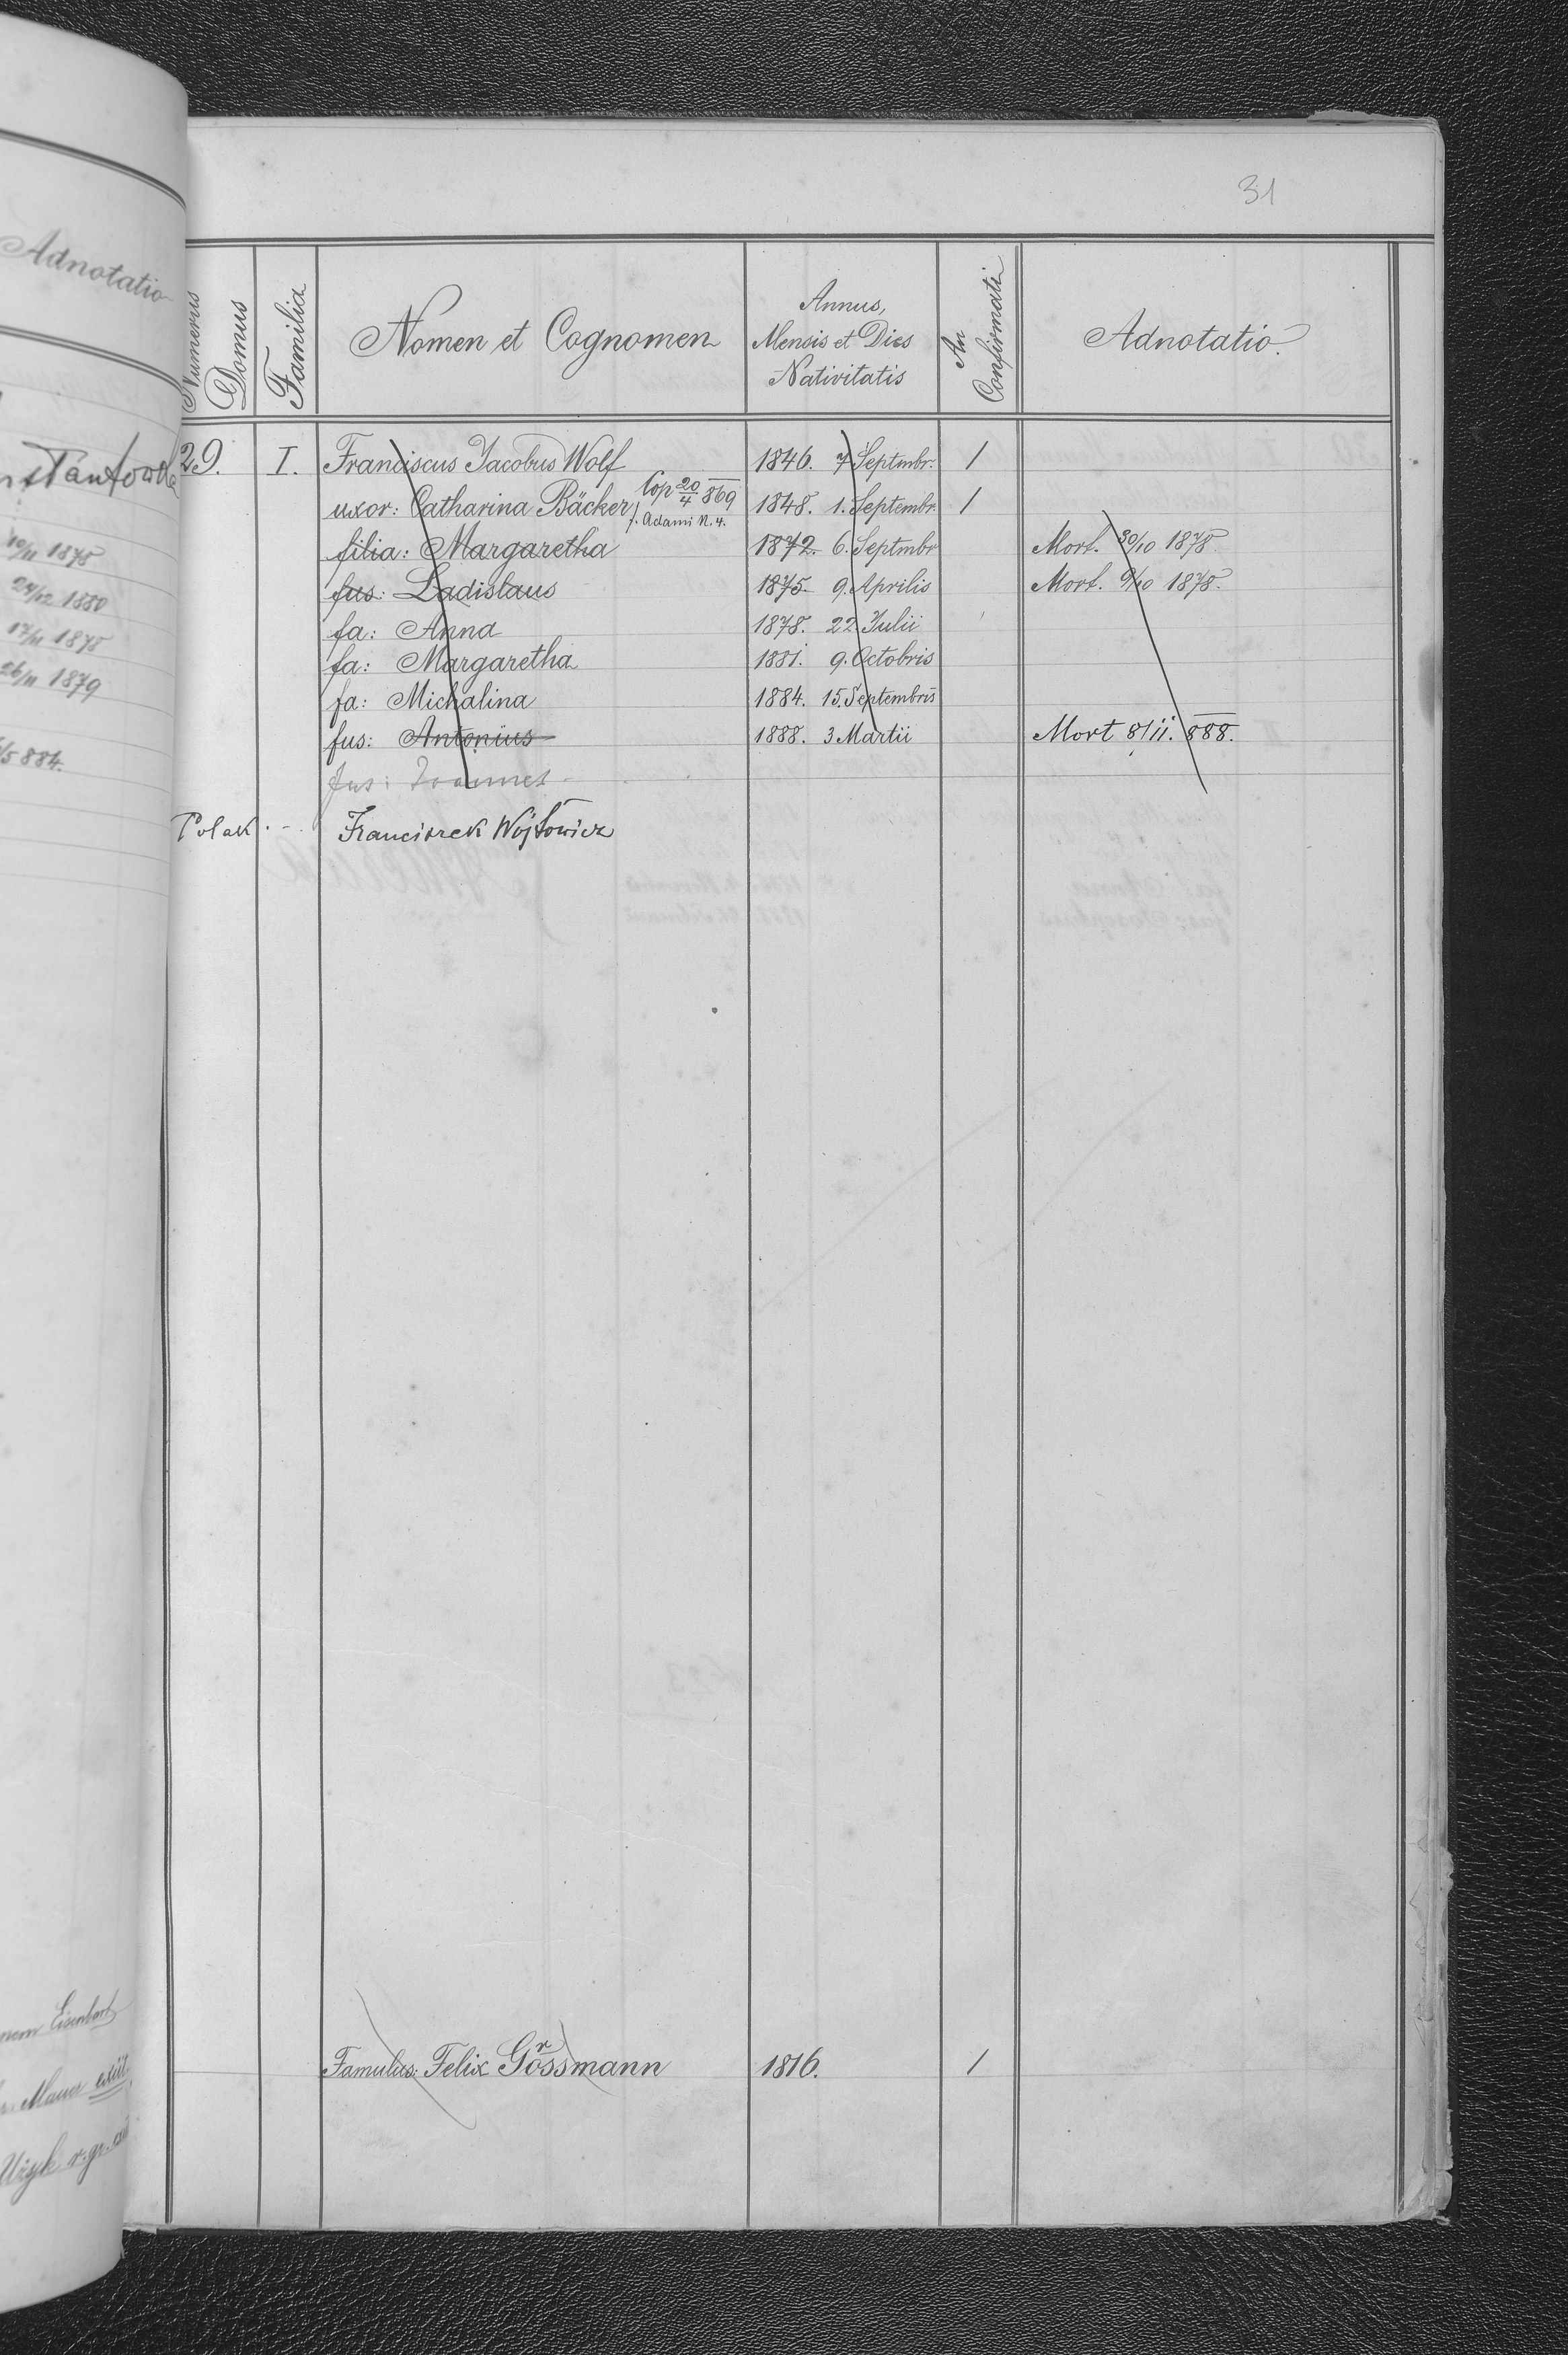 Adnotatio
10/11 1878
24/12 1880
17/11 1878
26/11 1879
/5 884.
Eisenbart
Maua exiit
31
Numerus Domus
Familia
Nomen et Cognomen
Annus,
Mensis et Dies
Nativitatis
An
Confirmati
Adnotatio.
29. I. Franciscus Jacobus Wolf 1846. 7 Septmbr. 1
Cop 20/4 869
uxor: Catharina Bäcker 1848. 1. Septembr. 1
f. Adami N. 4.
filia: Margaretha 1872. 6. Septmbr Mort. 30/10 1878.
fus: Ladislaus 1875. 9. Aprilis Mort. 9/10 1878.
fa: Anna 1878. 22. Julii
fa: Margaretha 1881. 9. Octobris
fa: Michalina 1884. 15. Septembris
fus: Antonius 1888. 3 Martii Mort 8/11. 888.
fus: Joannes
Polak Franciszek Wojtowicz
Famulus: Felix Gossmann 1816. 1
r